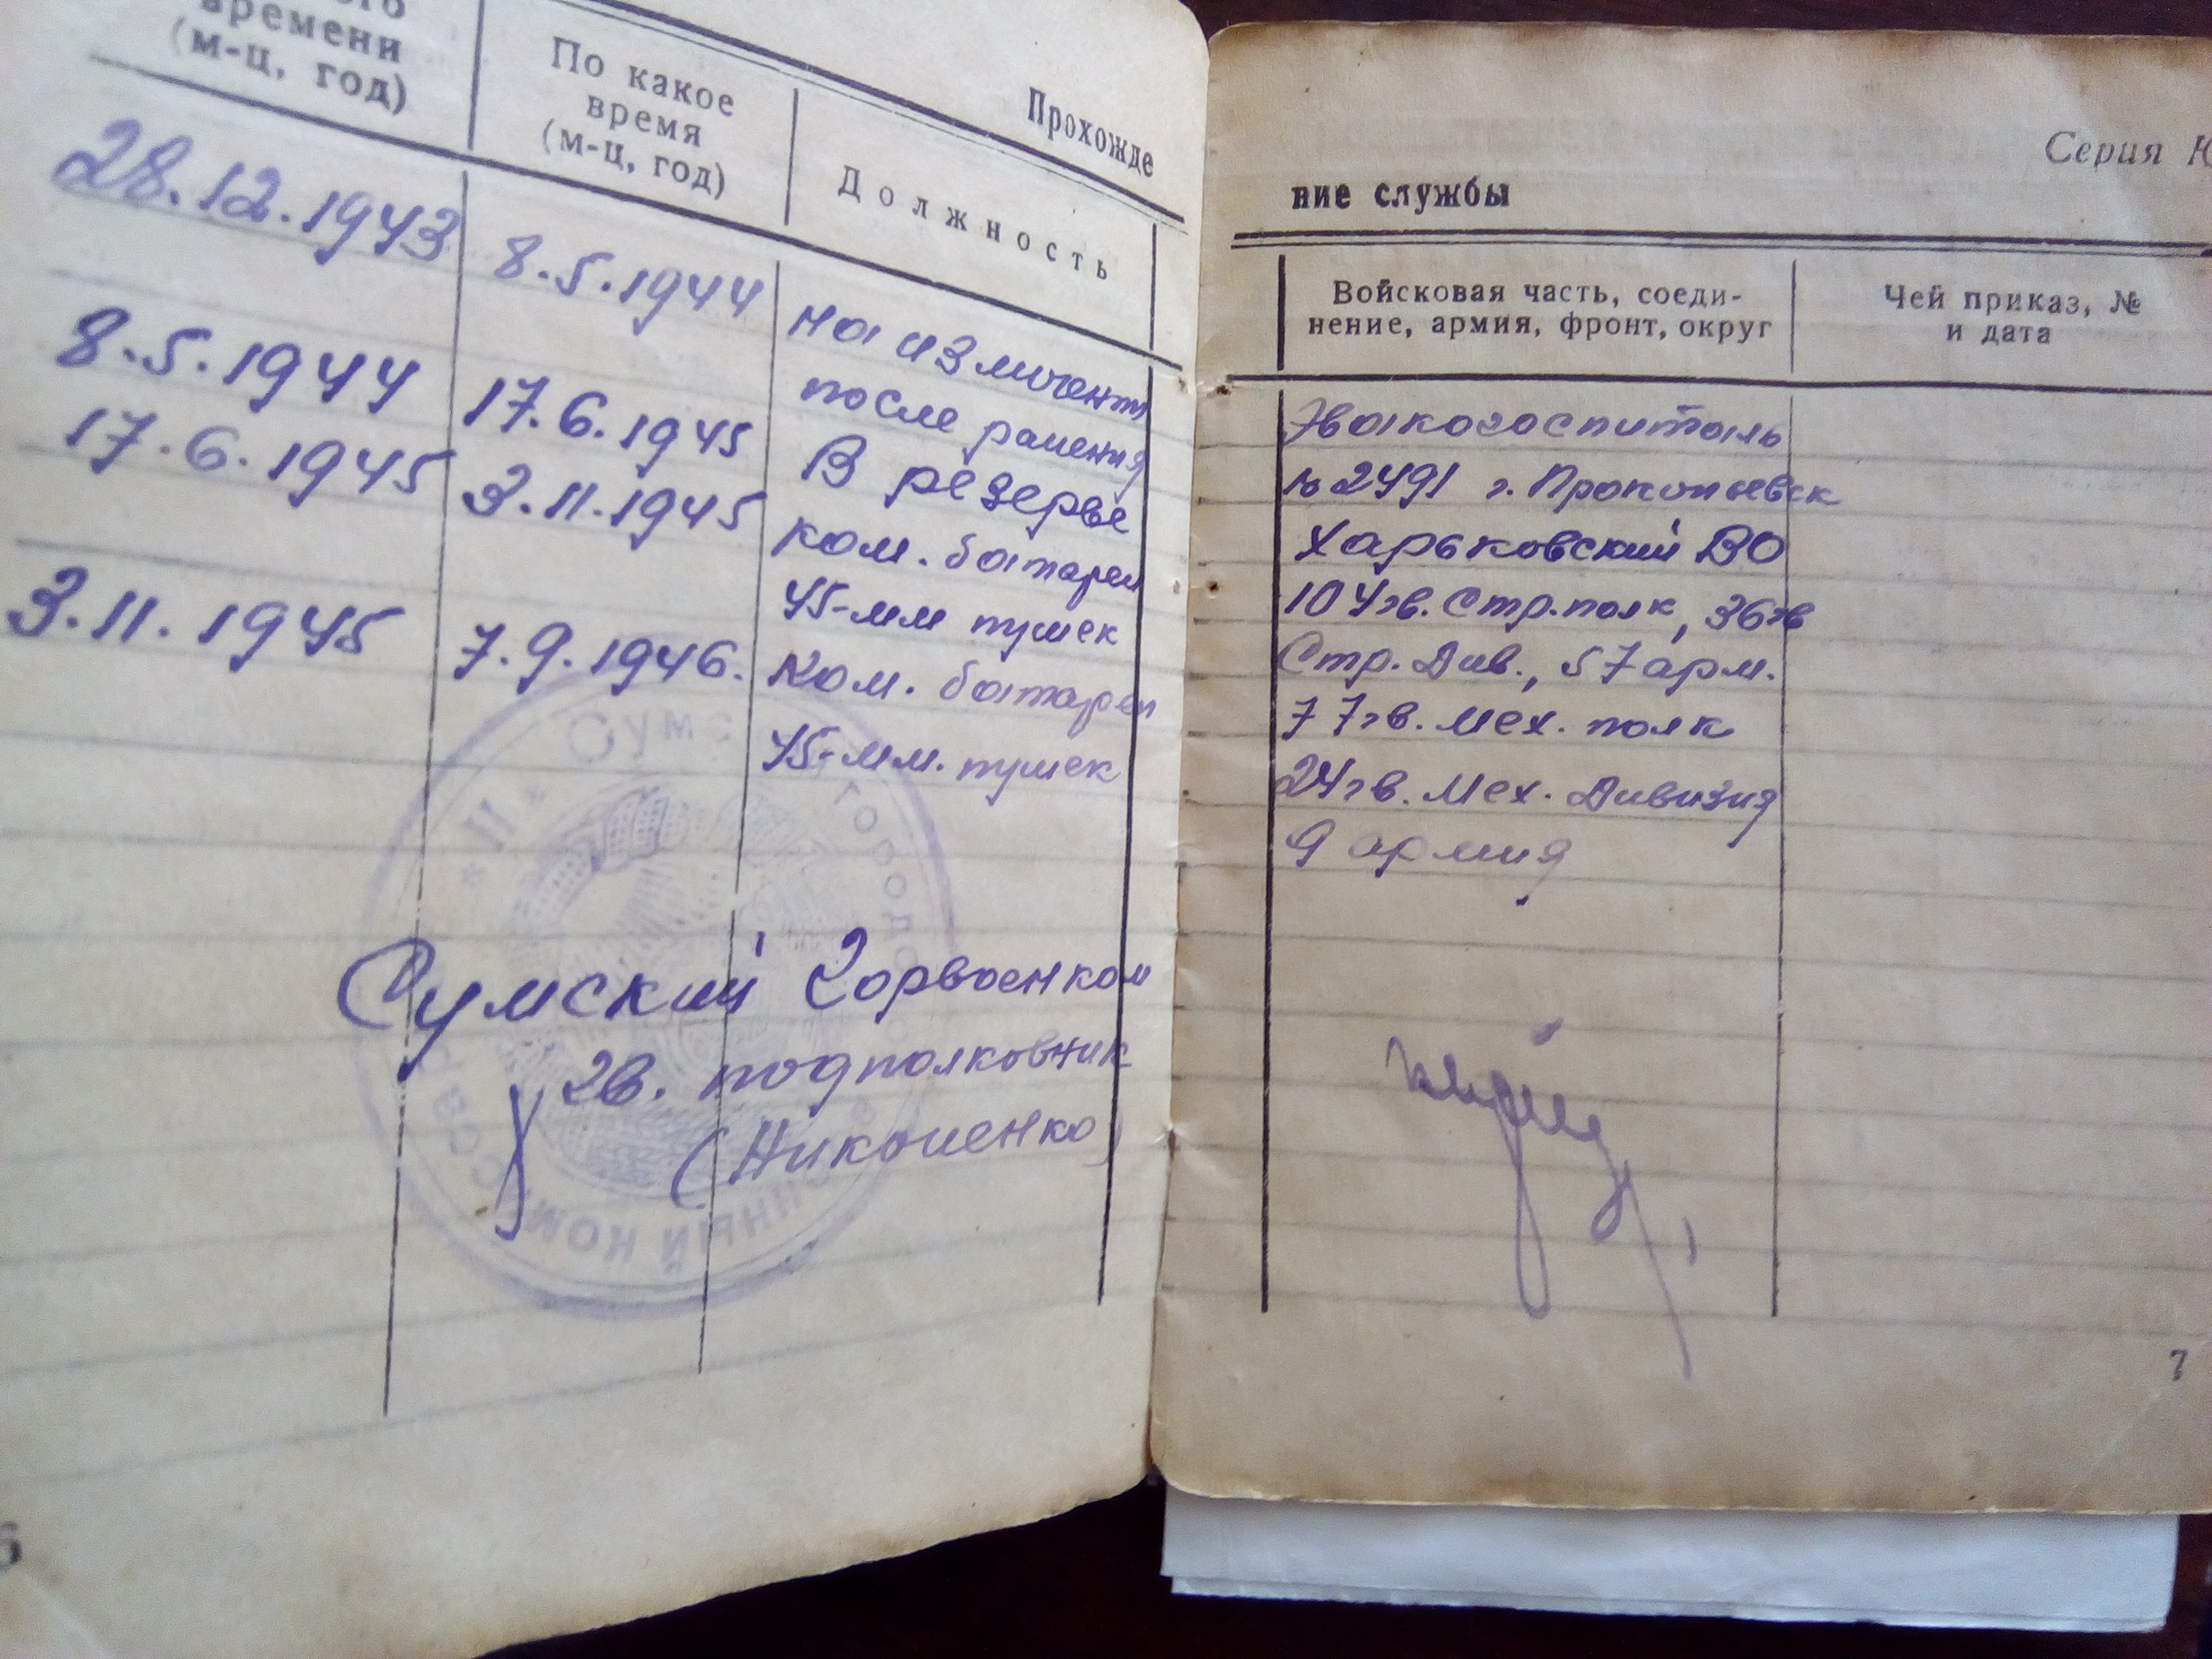 времени
(м-ц, год)
По какое
время
(м-ц, год)
Должность
Прохожде
28.12.1943
8.5.1944
на излечении
после ранения
8.5.1944
17.6.1945
В резерве
17.6.1945
3.11.1945
ком. батареи
45-мм пушек
3.11.1945
7.9.1946.
Ком. батареи
45-мм. пушек
Сумский Горвоенком
гв. подполковник
Серия
ние службы
Войсковая часть, соеди-
нение, армия, фронт, округ
Чей приказ, №
и дата
Эвакогоспиталь
№ 2491 г. Прокопьевск
Харьковский ВО
104 гв. Стр. полк, 36 гв
Стр. Див., 57 арм.
77 гв. мех. полк
24 гв. мех. Дивизия
9 армия
7